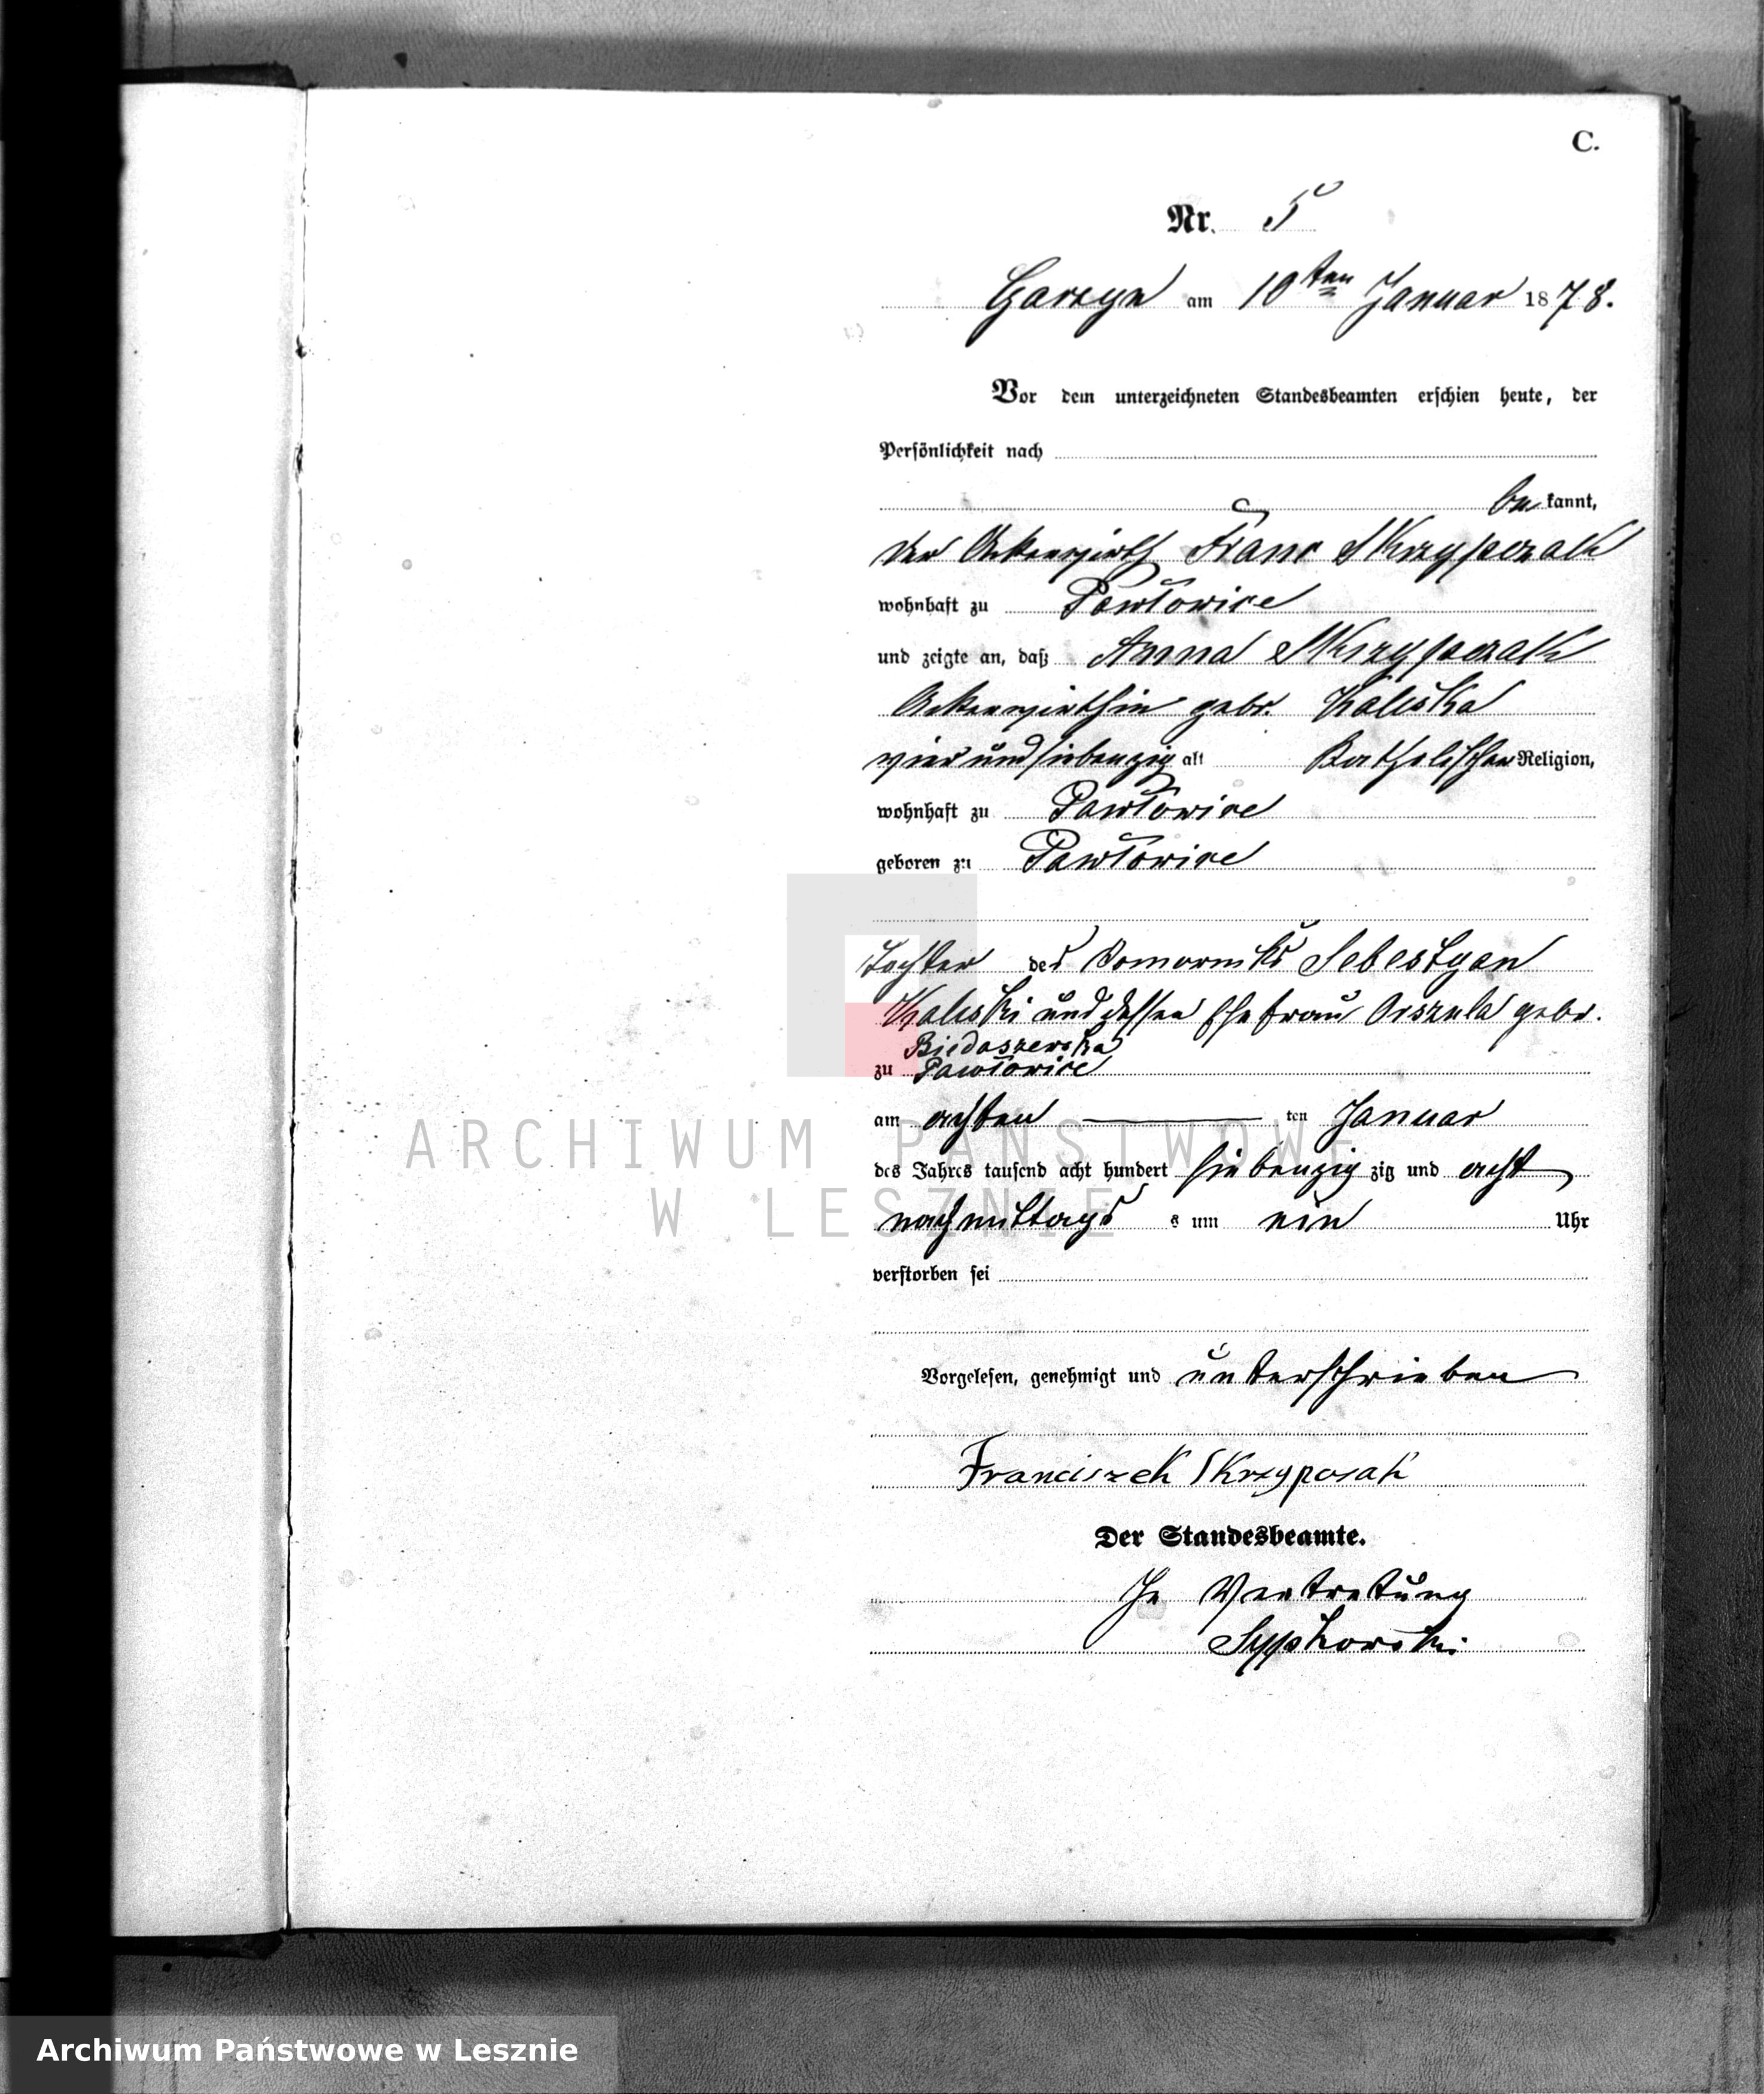 C.
Nr. 5
Garzyn am 10ten Januar 1878.
Vor dem unterzeichneten Standesbeamten erschien heute, der
Persönlichkeit nach
bekannt,
der Ackerwirth Franc Skrzypczak
wohnhaft zu Pawłowice
und zeigte an, daß Anna Skrzypczak
Ackerwirthin gebr. Kaliska
vierundsiebenzig alt Katholischer Religion,
wohnhaft zu Pawłowice
geboren zu Pawłowice
Tochter des Komorniks Sebestyan
Kaliski und dessen Ehefrau Orszula gebr.
Biedaszewska
zu Pawłowice
am achten ten Januar
des Jahres tausend acht hundert siebenzig zig und acht
nachmittags s um ein Uhr
verstorben sei
Vorgelesen, genehmigt und unterschrieben
Franciszek Skrzypczak
Der Standesbeamte.
In Vertretung
Sypkowski.
ARCHIWUM PAŃSTWOWE
W LESZNIE
Archiwum Państwowe w Lesznie